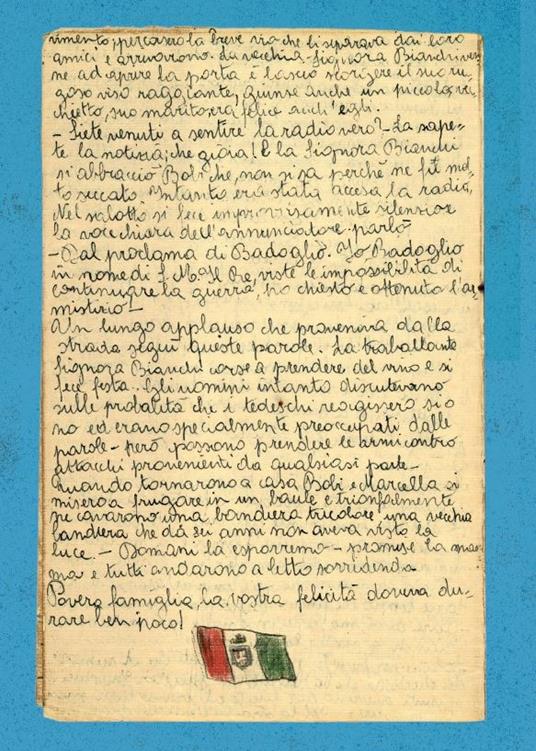 rimento, percorsero la breve via che li separava dai loro
amici e arrivarono. La vecchia Signora Bianchi ven-
ne ad aprire la porta e lasciò scorgere il suo ru-
goso viso raggiante; giunse anche un piccolo vec-
chietto, suo marito; era felice anch'egli.
- Siete venuti a sentire la radio vero? - La sape-
te la notizia; che gioia! E la Signora Bianchi
si abbracciò Bobi che, non si sa perchè ne fu mol-
to seccato. Intanto era stata accesa la radio,
Nel salotto si fece improvvisamente silenzio e
la voce chiara dell'annunciatore parlò
- Dal proclama di Badoglio. Io Badoglio
in nome di S. M. Il Re, viste le impossibilità di
continuare la guerra, ho chiesto e ottenuto l'ar-
mistizio -
Un lungo applauso che proveniva dalla
strada seguì queste parole. La traballante
Signora Bianchi corse a prendere del vino e si
fece festa. Gli uomini intanto discutevano
sulle probalità che i tedeschi reagissero si o
no ed erano specialmente preoccupati dalle
parole - però possono prendere le armi contro
attacchi provenienti da qualsiasi parte -
Quando tornarono a casa Bobi e Marcella si
misero a frugare in un baule e trionfalmente
ne cavarono una bandiera tricolore, una vecchia
bandiera che da sei anni non aveva visto la
luce. - Domani la esporremo - promise la mam-
ma e tutti andarono a letto sorridendo.
Povera famiglia, la vostra felicità doveva du-
rare ben poco!